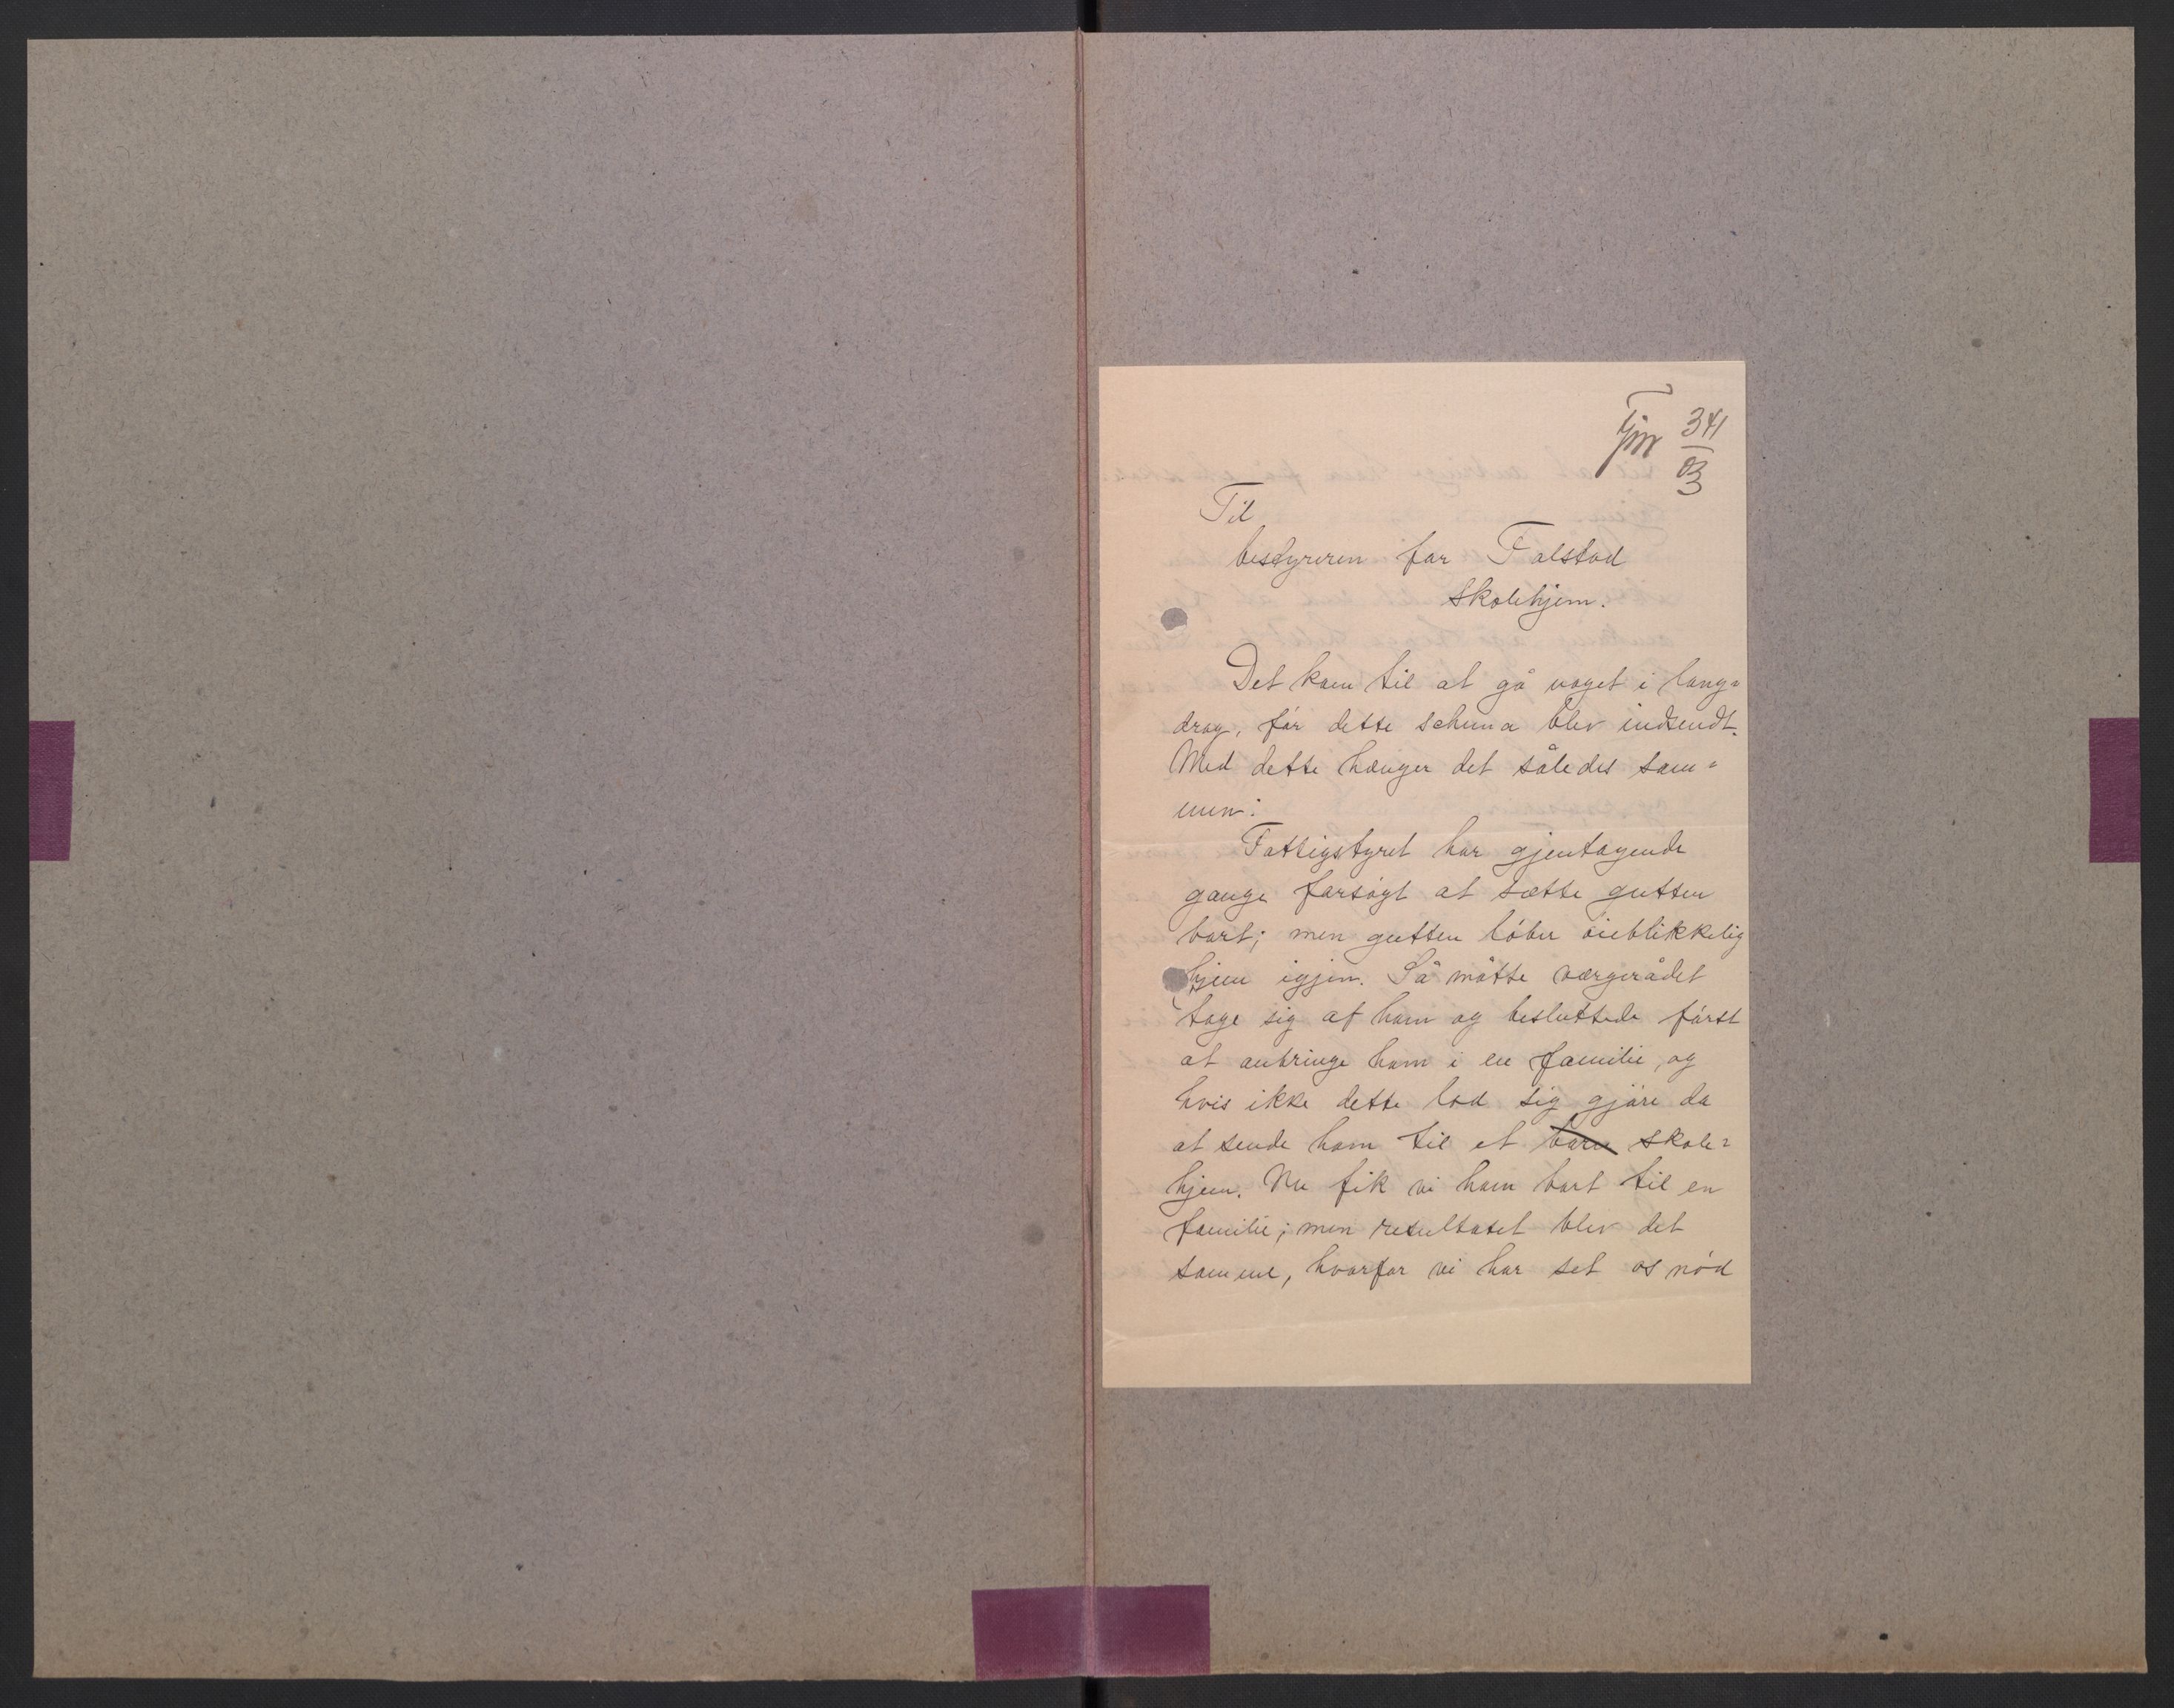 341
03
Til
bestyreren for Falstad
skolehjem.
Det kom til at gå noget i lang=
drag, før dette schema blev indsendt.
Med dette hænger det således sam=
men:
Fattigstyret har gjentagende
gange forsøgt at sætte gutten
bort; men gutten løber øieblikkelig
hjem igjen. Så måtte værgerådet
tage sig af ham og besluttede først
at anbringe ham i en familie, og
hvis ikke dette lod sig gjøre da
at sende ham til et barn skole=
hjem. Nu fik vi ham bort til en
familie; men resultatet blev det
samme, hvorfor vi har set os nød